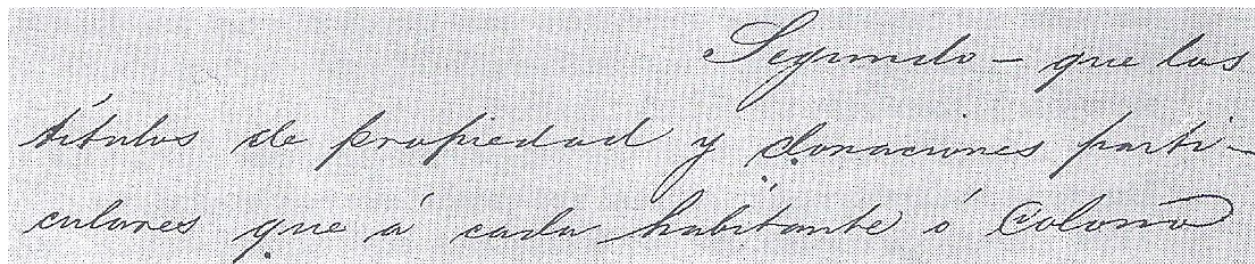 Segundo – que los
títulos de propiedad y donaciones parti-
culares que á cada habitante ó Colono